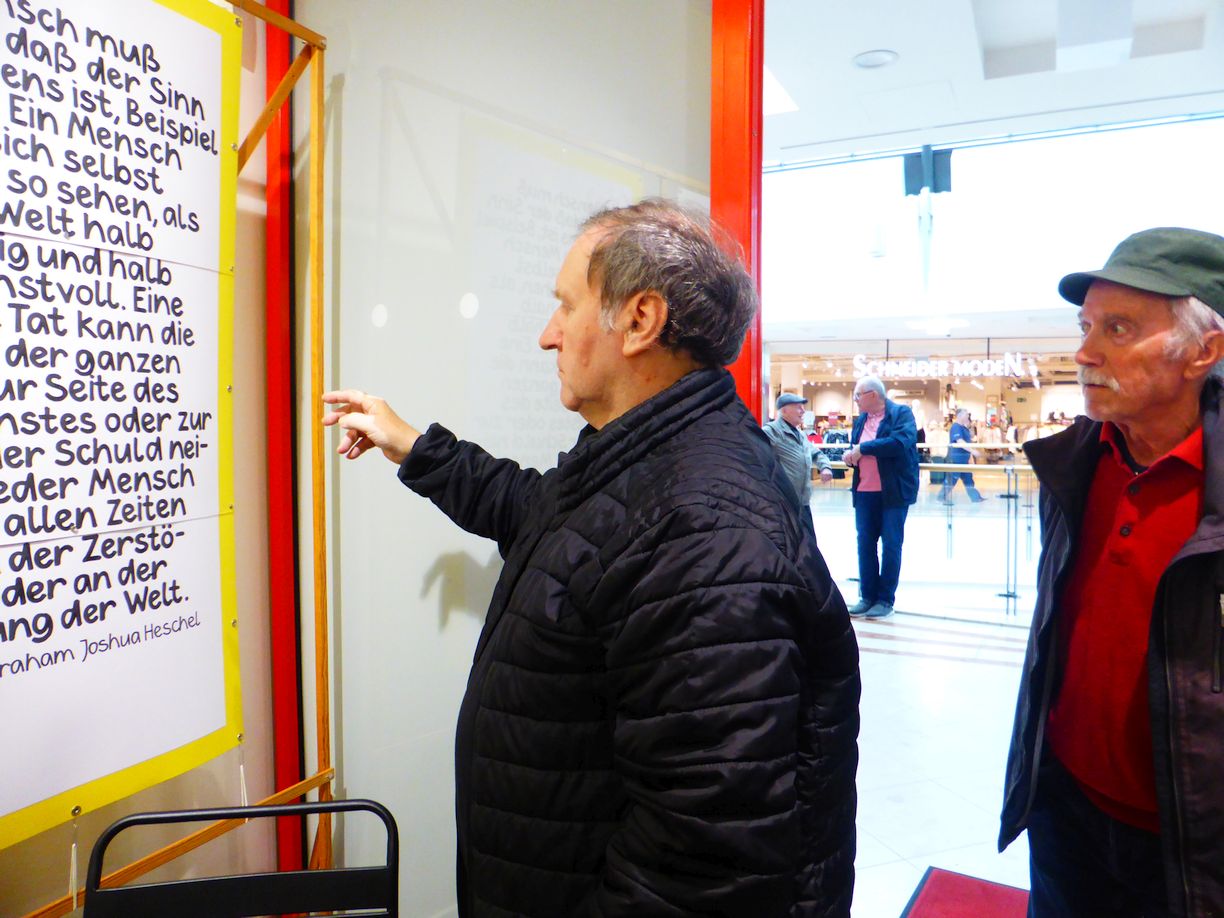 nsch muß
daß der Sinn
ens ist, Beispiel
Ein Mensch
ich selbst
so sehen, als
Welt halb
ig und halb
nstvoll. Eine
Tat kann die
der ganzen
ur Seite des
nstes oder zur
der Schuld nei-
eder Mensch
allen Zeiten
der Zerstö-
der an der
ung der Welt.
raham Joshua Heschel
SCHNEIDER MODEN